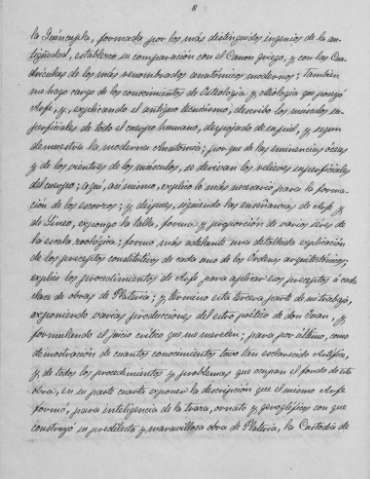 8
la Quincupla, formada por los más distinguidos ingenios de la an-
tigüedad, establezco su comparación con el Canon griego, y con las Cua-
drículas de los más renombrados anatómicos modernos; también
me hago cargo de los conocimientos de Osteología y Miología que poseyó
Arfe, y, explicando el antiguo tecnicismo, describo los músculos su-
perficiales de todo el cuerpo humano, despojado de su piel, y segun
demuestra la moderna Anatomía; por que de las eminencias óseas
y de los vientres de los músculos, se derivan los relieves superficiales
del cuerpo; aquí, asi mismo, explico lo más necesario para la forma-
ción de los escorzos; y despues, siguiendo las enseñanzas de Arfe y
de Lineo, expongo la talla, forma y proporción de varios séres de
la escala zoológica; formo más adelante una detallada explicación
de los preceptos constitutivos de cada uno de los Ordenes arquitectónicos;
explico los procedimientos de Arfe para aplicar sus preceptos á cada
clase de obras de Platería; y termino esta tercera parte de mi trabajo,
exponiendo varias producciones del estro poético de don Juan, y
formulando el juicio crítico que me merecen; para por último, como
demostración de cuantos conocimientos tuvo tan esclarecido Artífice,
y de todos los procedimientos y problemas que ocupan el fondo de esta
obra, en su parte cuarta exponer la descripción que el mismo Arfe
formó, para inteligencia de la traza, ornato y geroglíficos con que
construyó su predilecta y maravillosa obra de Platería, la Custodia de